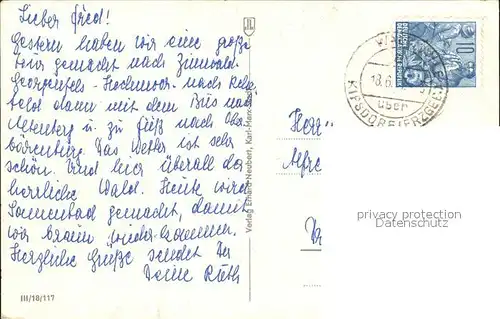 Lieber Fred!
Gestern haben wir eine große
Tour gemacht nach Zinnwald-
Georgenfeld - Hochmoor - nach Rehe-
feld dann mit dem Bus nach
Altenberg u. zu Fuß nach Obb.
Bärenburg. Das Wetter ist sehr
schön. Und hier überall der
herrliche Wald. Heute wird
Sonnenbad gemacht, damit
wir braun wieder kommen.
Herzliche Grüße sendet Dir
Deine Ruth
III/18/117
Verlag Erhard Neubert, Karl-Marx-
über
KIPSDORF (ERZGEB
10
Herr
Alfre
privacy protection
Watermark